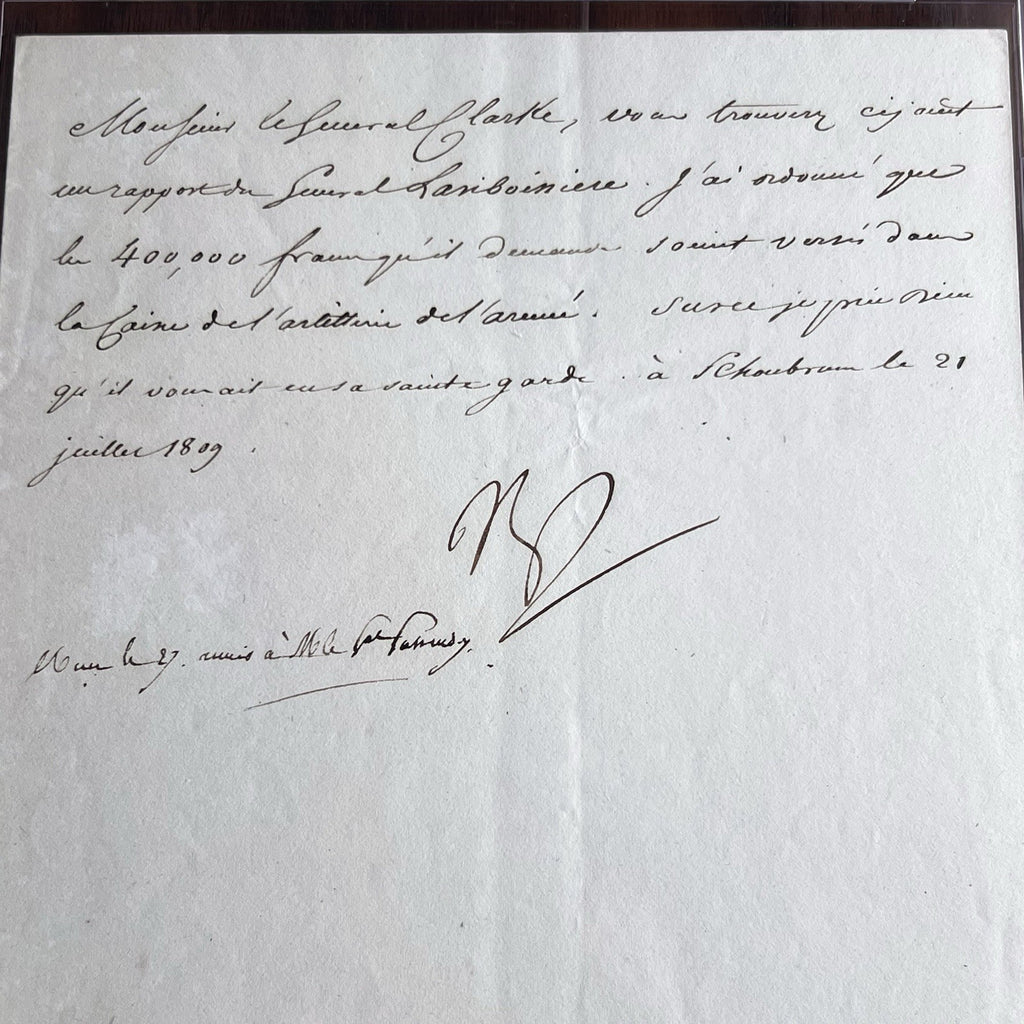 Monsieur le General Clarke, vous trouverez cijoint
un rapport du General Lariboissiere. J'ai ordonné que
les 400,000 francs qu'il demande soient versés dans
la Caisse de l'artillerie de l'armée. Sur ce je prie Dieu
qu'il vous ait en sa sainte garde. à Schonbrunn le 21
juillet 1809.
le 27. remis à M. le